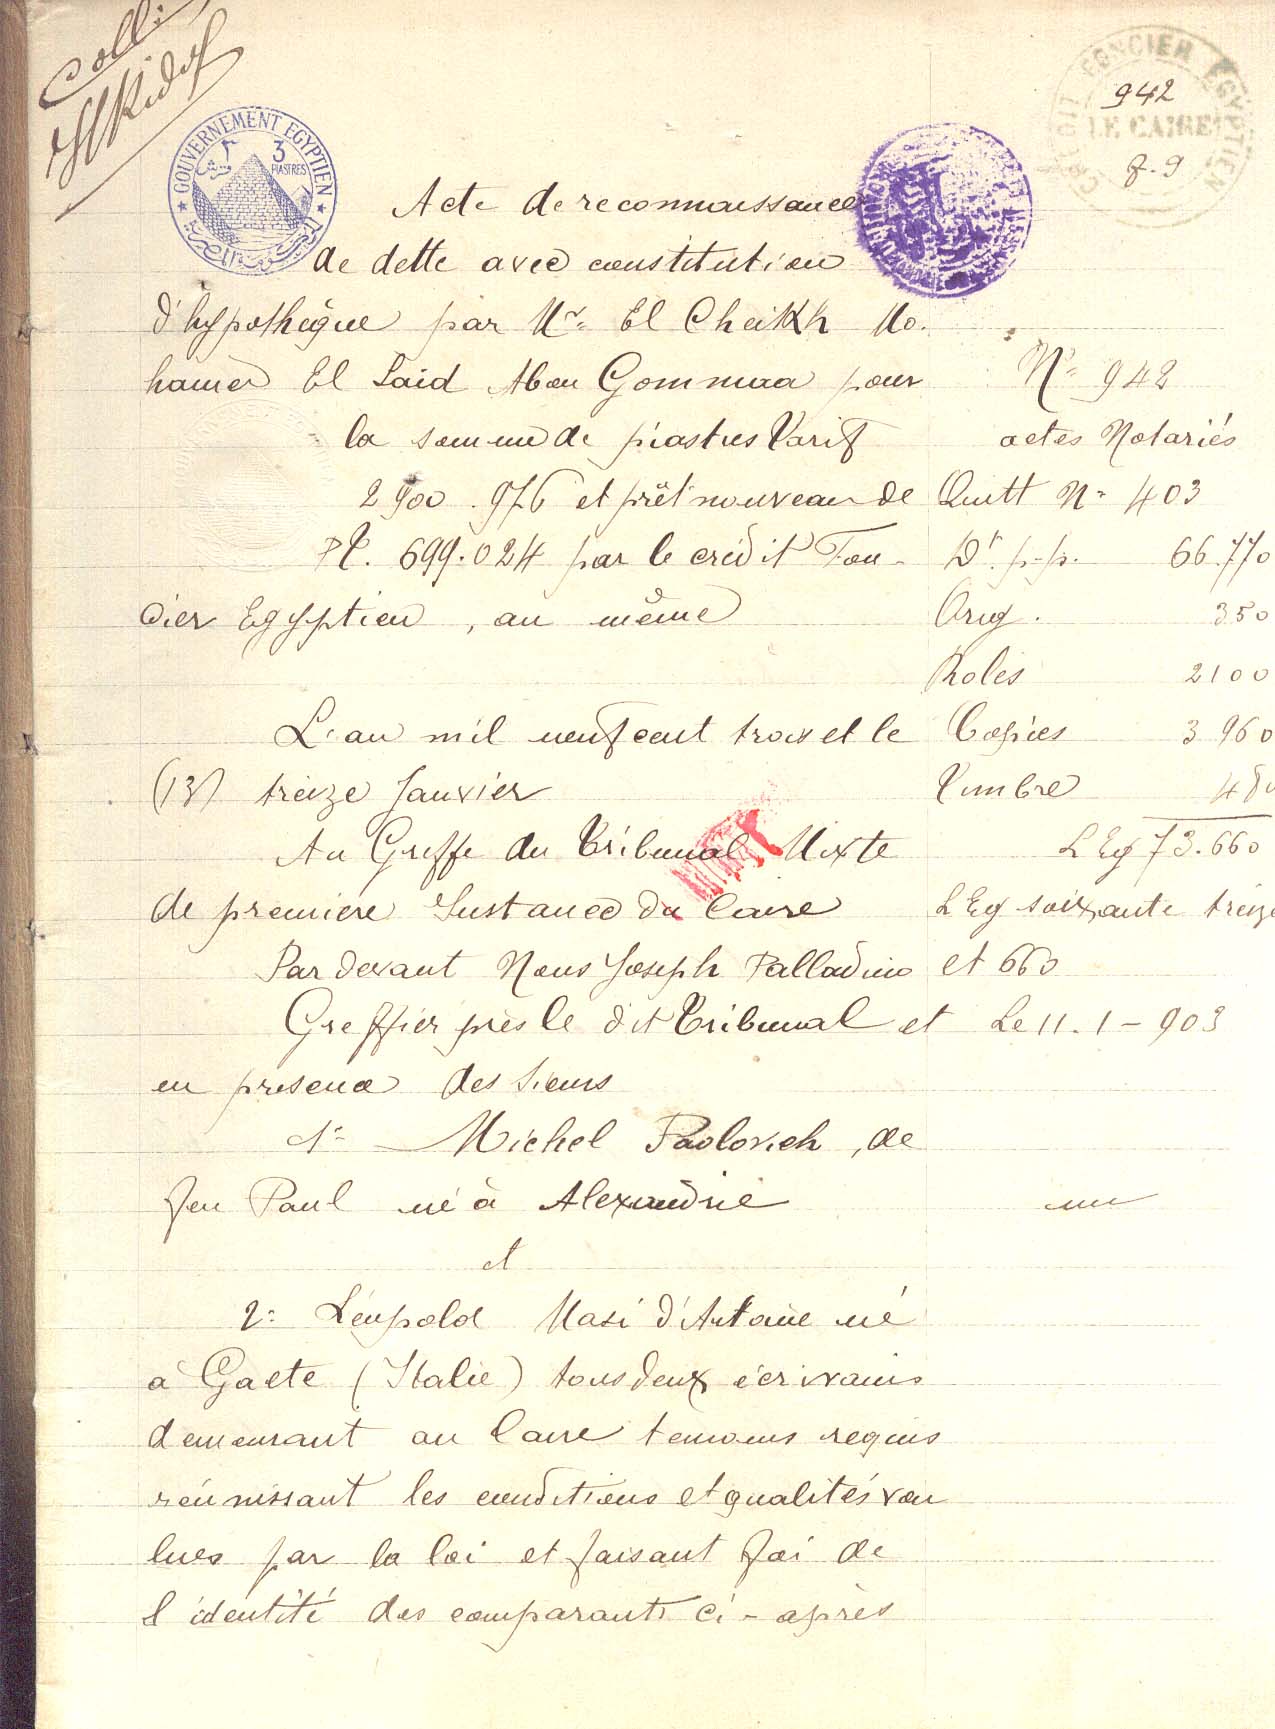 Colli
GOUVERNEMENT EGYPTIEN
3
PIASTRES
CREDIT FONCIER EGYPTIEN
LE CAIRE
942
f. 9
Acte de reconnaissance
de dette avec constitution
d'hypothèque par Mr. El Cheikh Mo-
hamed El Said Abou Gommaa pour
la somme de piastres Tarif
2900.976 et prêt nouveau de
PT. 699.024 par le crédit Fon-
cier Egyptien, au même
L'an mil neuf cent trois et le
(13) treize Janvier
Au Greffe du Tribunal Mixte
de premiere Instance du Caire
Par devant Nous Joseph Palladino
Greffier près le dit Tribunal et
en presence des Sieurs
1º Michel Paolovich, de
feu Paul né à Alexandrie
et
2º Léopold Masi d'Antoine né
à Gaete (Italie) tous deux écrivains
demeurant au Caire temoins requis
réunissant les conditions et qualités vou
lues par la loi et faisant foi de
l'identité des comparants ci-après
Nº 942
actes Notariés
Quitt Nº 403
Dr. p.p. 66.770
Orig. 350
Roles 2100
Copies 3960
Timbre 480
L Eg 73.660
L Eg soixante treize
et 660
Le 11-1-903
un